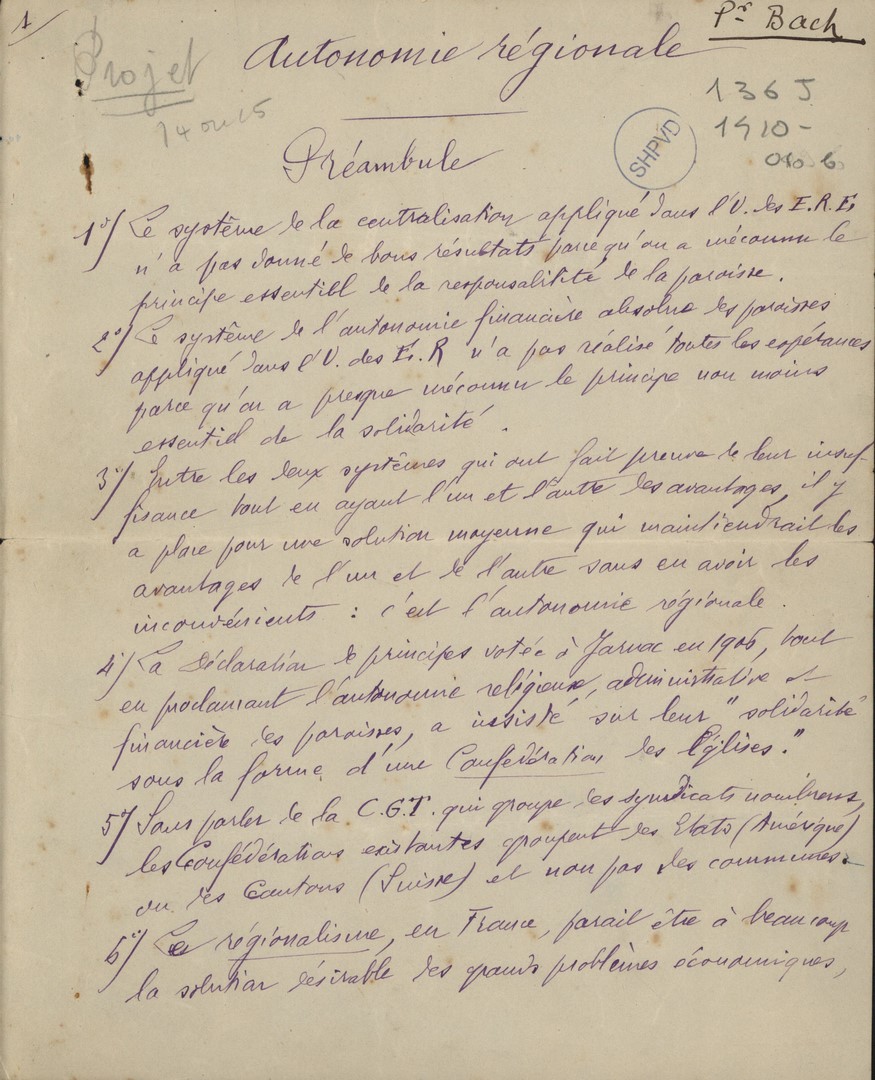 1
Pr Bach
Projet
Autonomie régionale
14 ou 15
136 J
1910 -
SHPVD
Préambule
1°/ Le système de la centralisation appliqué dans l'U. des E. R. E.
n'a pas donné de bons résultats parce qu'on a méconnu le
principe essentiel de la responsabilité de la paroisse.
2°/ Le système de l'autonomie financière absolue des paroisses
appliqué dans l'U. des E. R n'a pas réalisé toutes les espérances
parce qu'on a presque méconnu le principe non moins
essentiel de la solidarité.
3°/ Entre les deux systèmes qui ont fait preuve de leur insuf-
fisance tout en ayant l'un et l'autre des avantages, il y
a place pour une solution moyenne qui maintiendrait les
avantages de l'un et de l'autre sans en avoir les
inconvénients : c'est l'autonomie régionale.
4°/ La Déclaration de principes votée à Jarnac en 1906, tout
en proclamant l'autonomie religieuse, administrative et
financière des paroisses, a insisté sur leur "solidarité
sous la forme d'une Confédération des Eglises."
5°/ Sans parler de la C.G.T. qui groupe des syndicats nombreux,
les Confédérations existantes groupent des Etats (Amérique)
ou des Cantons (Suisse) et non pas des communes.
6°/ Le régionalisme, en France, parait être à beaucoup
la solution désirable des grands problèmes économiques,